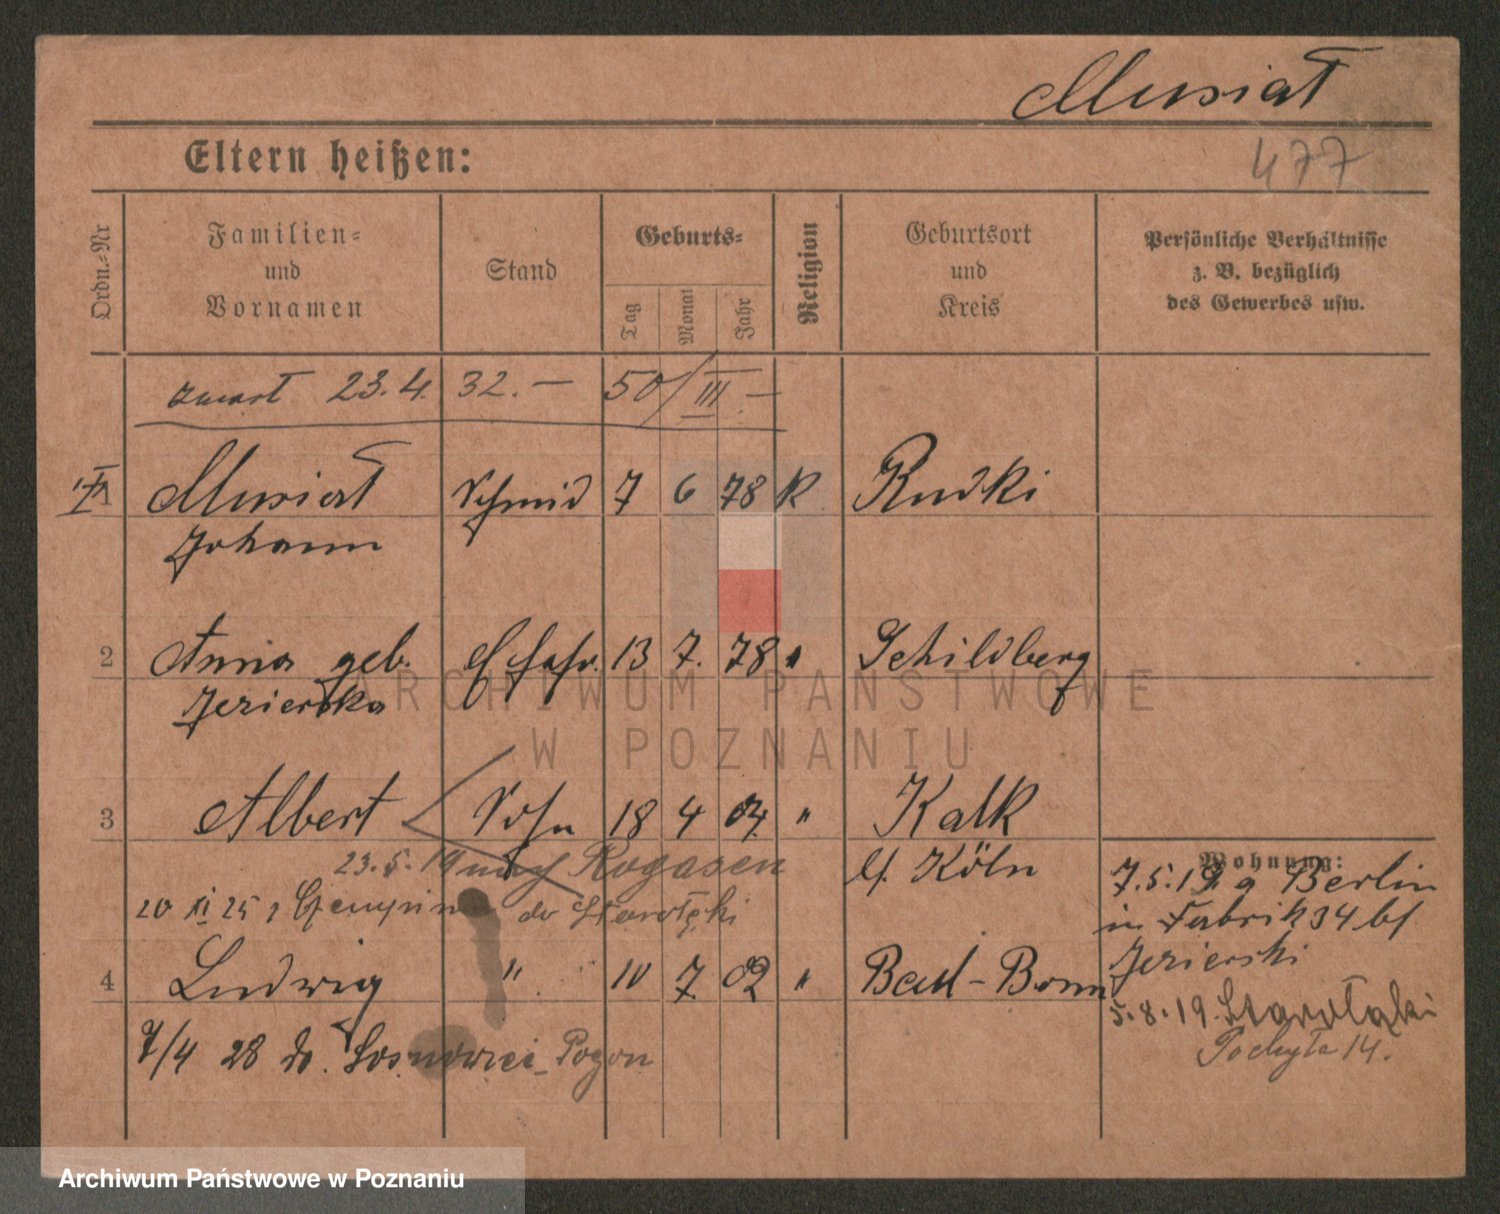 Musiał
477
Eltern heißen:
Ordn.-Nr
Familien-
und
Vornamen
Stand
Geburts-
Tag
Monat
Jahr
Religion
Geburtsort
und
Kreis
Persönliche Verhältnisse
z. B. bezüglich
des Gewerbes usw.
23.4. 32. — 50/III —
1 Musiał Schmid 7 6 78 K Rudki
Johann
2 Anna geb. Ehefr. 13 7. 78 " Schildberg
Jezierska
3 Albert Sohn 18 4 04 " Kalk
23.5.19 nach Rogasen Kr. Köln
Wohnung:
7.5.19 Berlin
20 XI 25 do Starołęki
in Fabrik 34 bei
Jezierski
4 Ludwig " 10 7 02 " Beul-Bonn
5.8.19. Starołęki
Pochyła 14.
7/4 28 do Sosnowiec-Pogon
ARCHIWUM PAŃSTWOWE
W POZNANIU
Archiwum Państwowe w Poznaniu